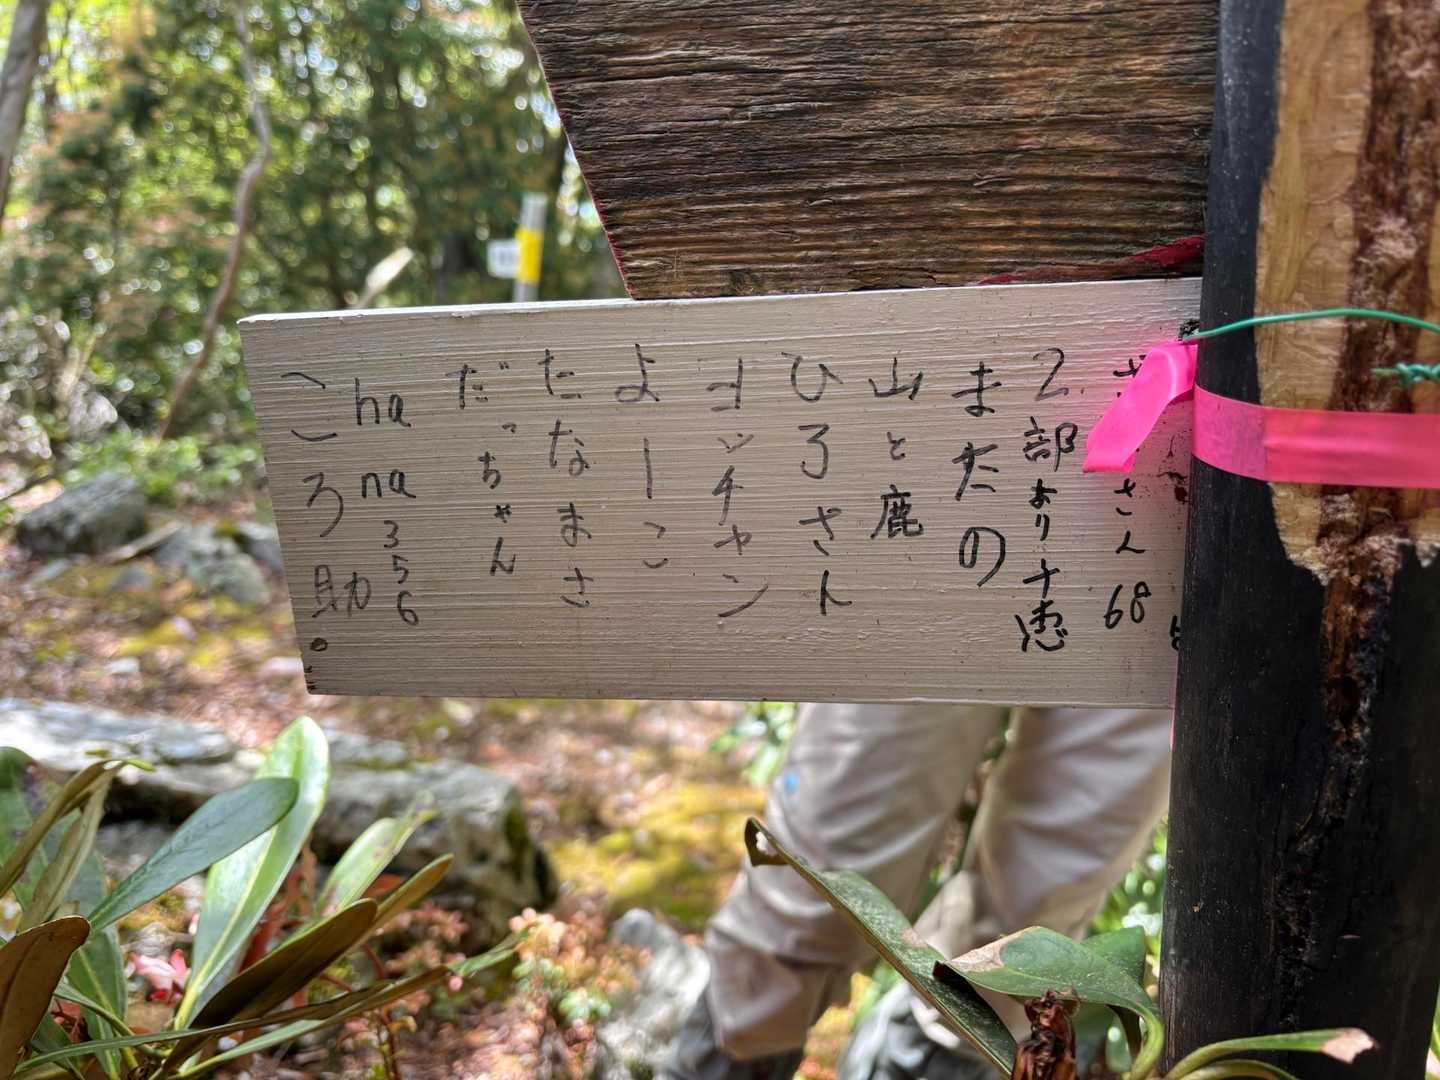 さん 68
2部より千恵
またの
山と鹿
ひろさト
コーッチャン
よーこ
たなまさ
だっちゃん
hana356
ころ助。